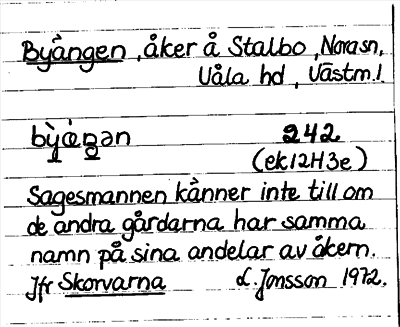 Byängen, åker å Stalbo, Nora sn,
Våla hd, Västm. l.
242
(ek 12H3e)
Sagesmannen känner inte till om
de andra gårdarna har samma
namn på sina andelar av åkern.
Jfr Skorvarna L. Jonsson 1972.